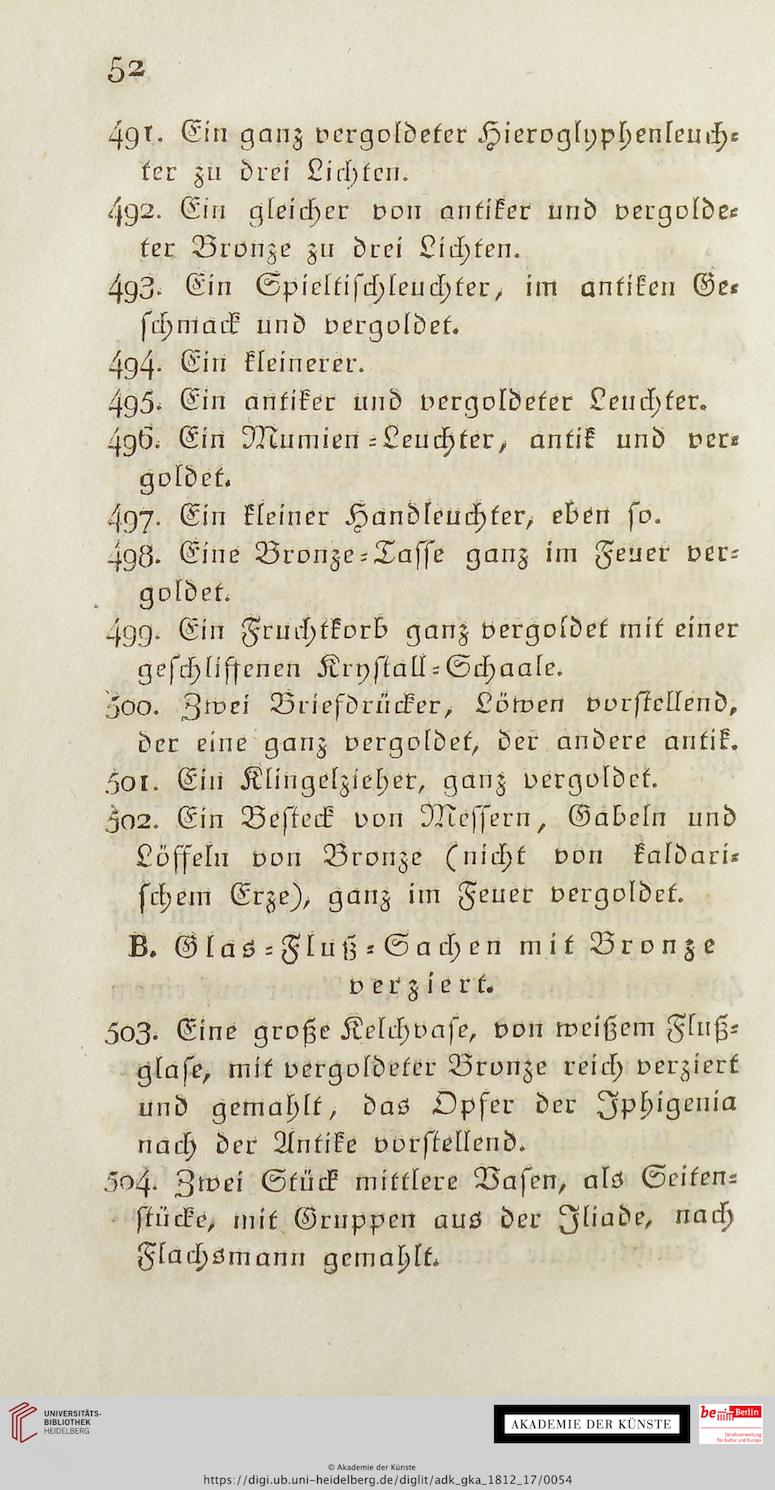 52
491. Ein ganz vergoldeter Hieroglyphenleuch-
ter zu drei Lichten.
492. Ein gleicher von antiker und vergolde-
ter Bronze zu drei Lichten.
493. Ein Spieltischleuchter, im antiken Ge-
schmack und vergoldet.
494. Ein kleinerer.
495. Ein antiker und vergoldeter Leuchter.
496. Ein Mumien-Leuchter, antik und ver-
goldet.
497. Ein kleiner Handleuchter, eben so.
498. Eine Bronze-Tasse ganz im Feuer ver-
goldet.
499. Ein Fruchtkorb ganz vergoldet mit einer
geschliffenen Krystall-Schaale.
500. Zwei Briefdrücker, Löwen vorstellend,
der eine ganz vergoldet, der andere antik.
501. Ein Klingelzieher, ganz vergoldet.
502. Ein Besteck von Messern, Gabeln und
Löffeln von Bronze (nicht von kaldari-
schem Erze), ganz im Feuer vergoldet.
B. Glas-Fluß-Sachen mit Bronze
verziert.
503. Eine große Kelchvase, von weißem Fluß-
glase, mit vergoldeter Bronze reich verziert
und gemahlt, das Opfer der Iphigenia
nach der Antike vorstellend.
504. Zwei Stück mittlere Vasen, als Seiten-
stücke, mit Gruppen aus der Iliade, nach
Flachsmann gemahlt.
UNIVERSITÄTS-
BIBLIOTHEK
HEIDELBERG
AKADEMIE DER KÜNSTE
be Berlin
Senatsverwaltung
für Kultur und Europa
© Akademie der Künste
https://digi.ub.uni-heidelberg.de/diglit/adk_gka_1812_17/0054